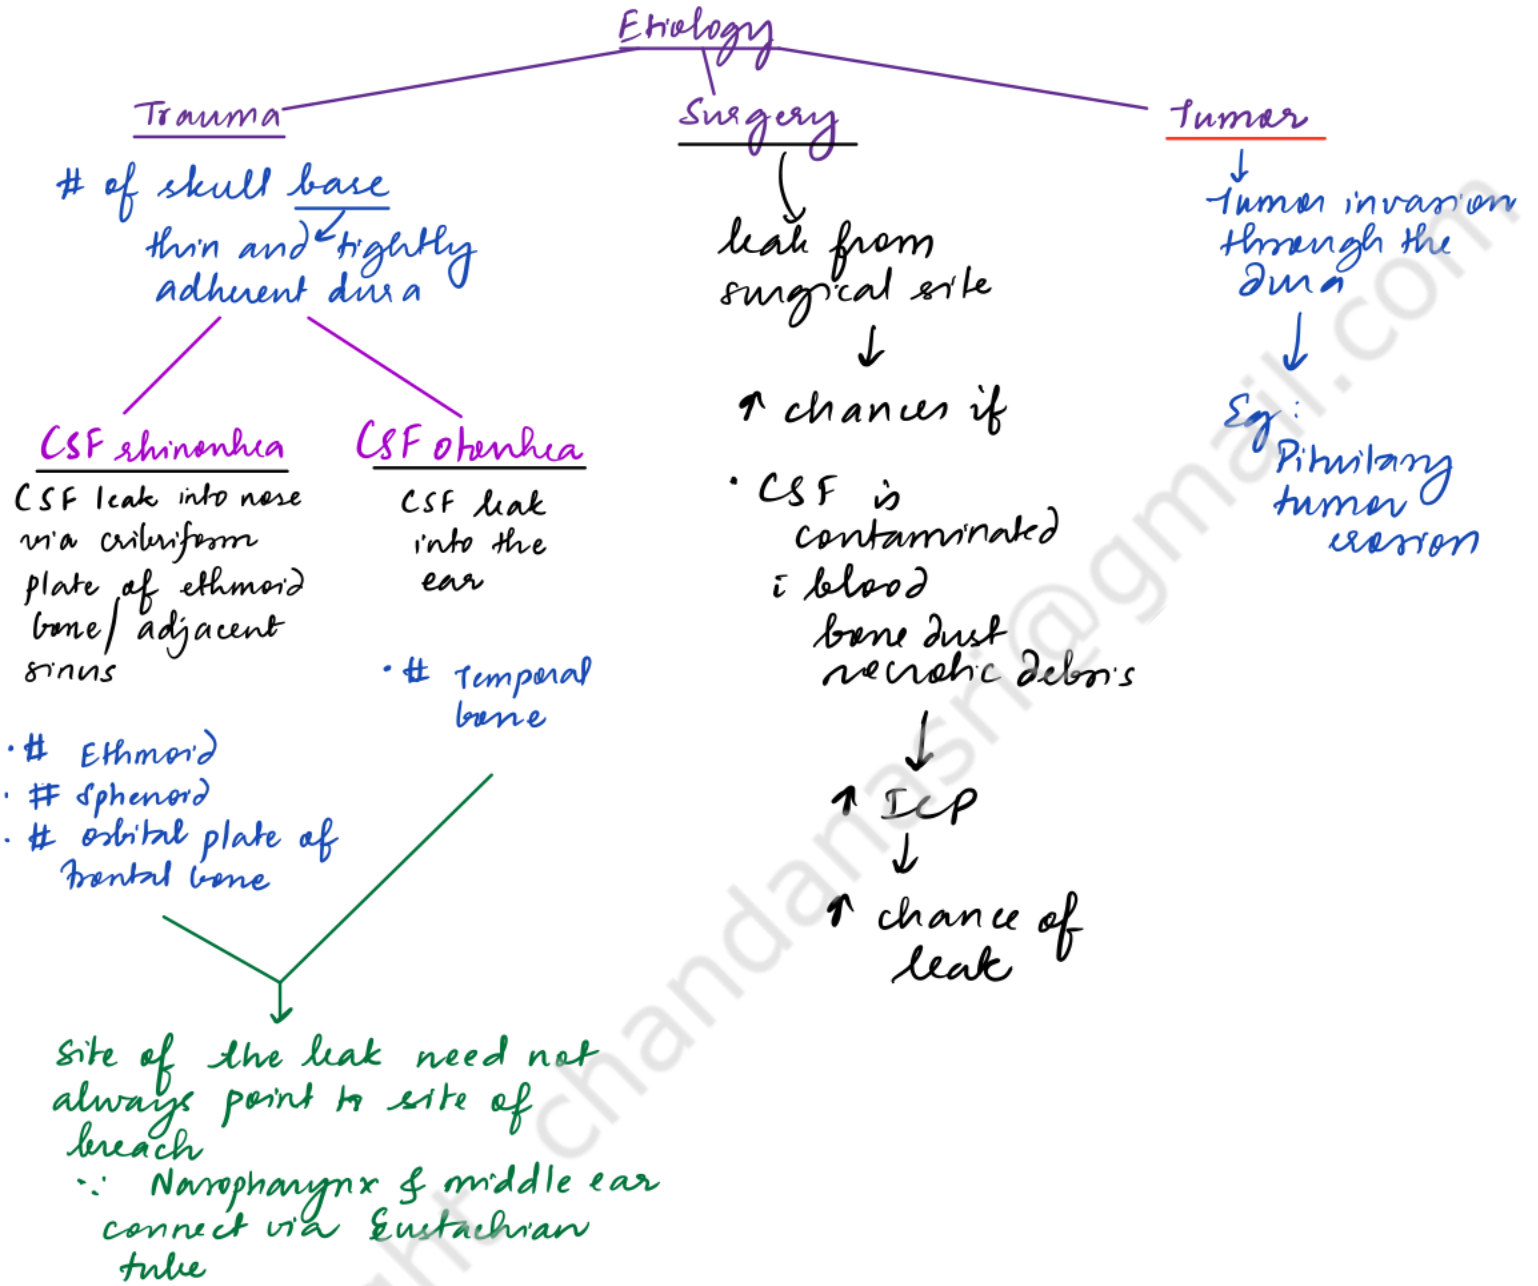 Etiology
Trauma
# of skull base
thin and tightly
adherent dura
CSF rhinorrhea
CSF leak into nose
via cribriform
plate of ethmoid
bone/ adjacent
sinus
· # Ethmoid
· # Sphenoid
· # orbital plate of
frontal bone
CSF otorrhea
CSF leak
into the
ear
· # Temporal
bone
site of the leak need not
always point to site of
breach
∵ Nasopharynx & middle ear
connect via Eustachian
tube
Surgery
leak from
surgical site
↑ chances if
· CSF is
contaminated
c̄ blood
bone dust
necrotic debris
↑ ICP
↑ chance of
leak
Tumor
Tumor invasion
through the
dura
Eg:
Pituitary
tumor
erosion
ght chandanasri@gmail.com